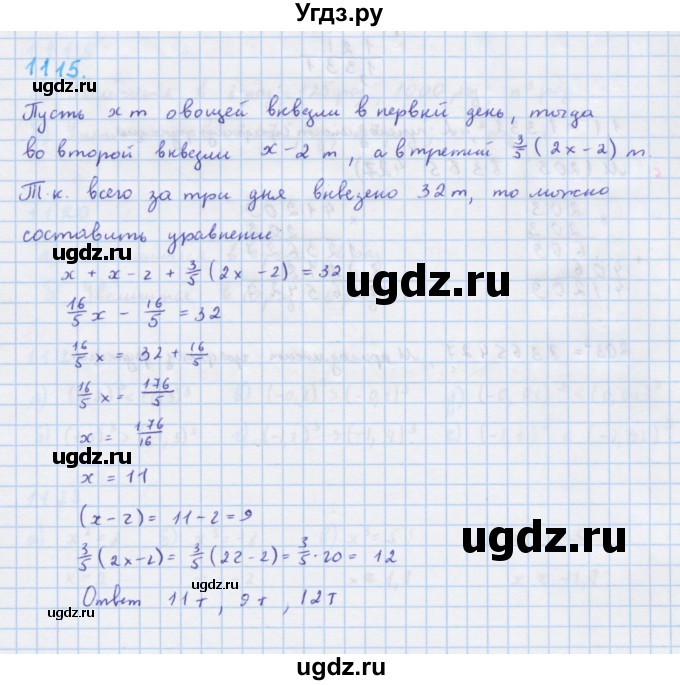 Угдз.ру
1115.
Пусть x т овощей вывезли в первый день, тогда
во второй вывезли x - 2 т, а в третий 3/5 (2x - 2) т.
Т.к. всего за три дня вывезено 32 т, то можно
составить уравнение
x + x - 2 + 3/5 (2x - 2) = 32
16/5 x - 16/5 = 32
16/5 x = 32 + 16/5
16/5 x = 176/5
x = 176/16
x = 11
(x - 2) = 11 - 2 = 9
3/5 (2x - 2) = 3/5 (22 - 2) = 3/5 · 20 = 12
Ответ 11 т, 9 т, 12 т
ugdz.ru
ugdz.ru
ugdz.ru
ugdz.ru
ugdz.ru
ugdz.ru
ugdz.ru
ugdz.ru
ugdz.ru